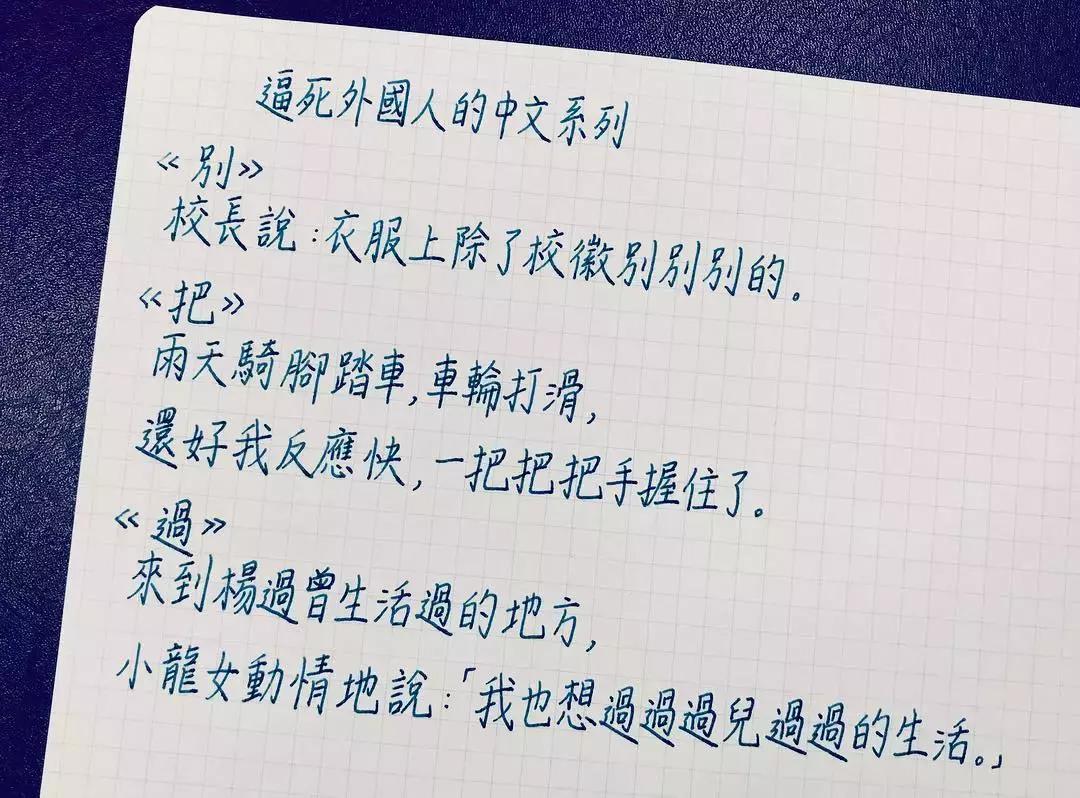 逼死外國人的中文系列
《別》
校長說:衣服上除了校徽別別別的。
《把》
雨天騎腳踏車,車輪打滑,
還好我反應快,一把把把手握住了。
《過》
來到楊過曾生活過的地方,
小龍女動情地說:「我也想過過過兒過過的生活。」